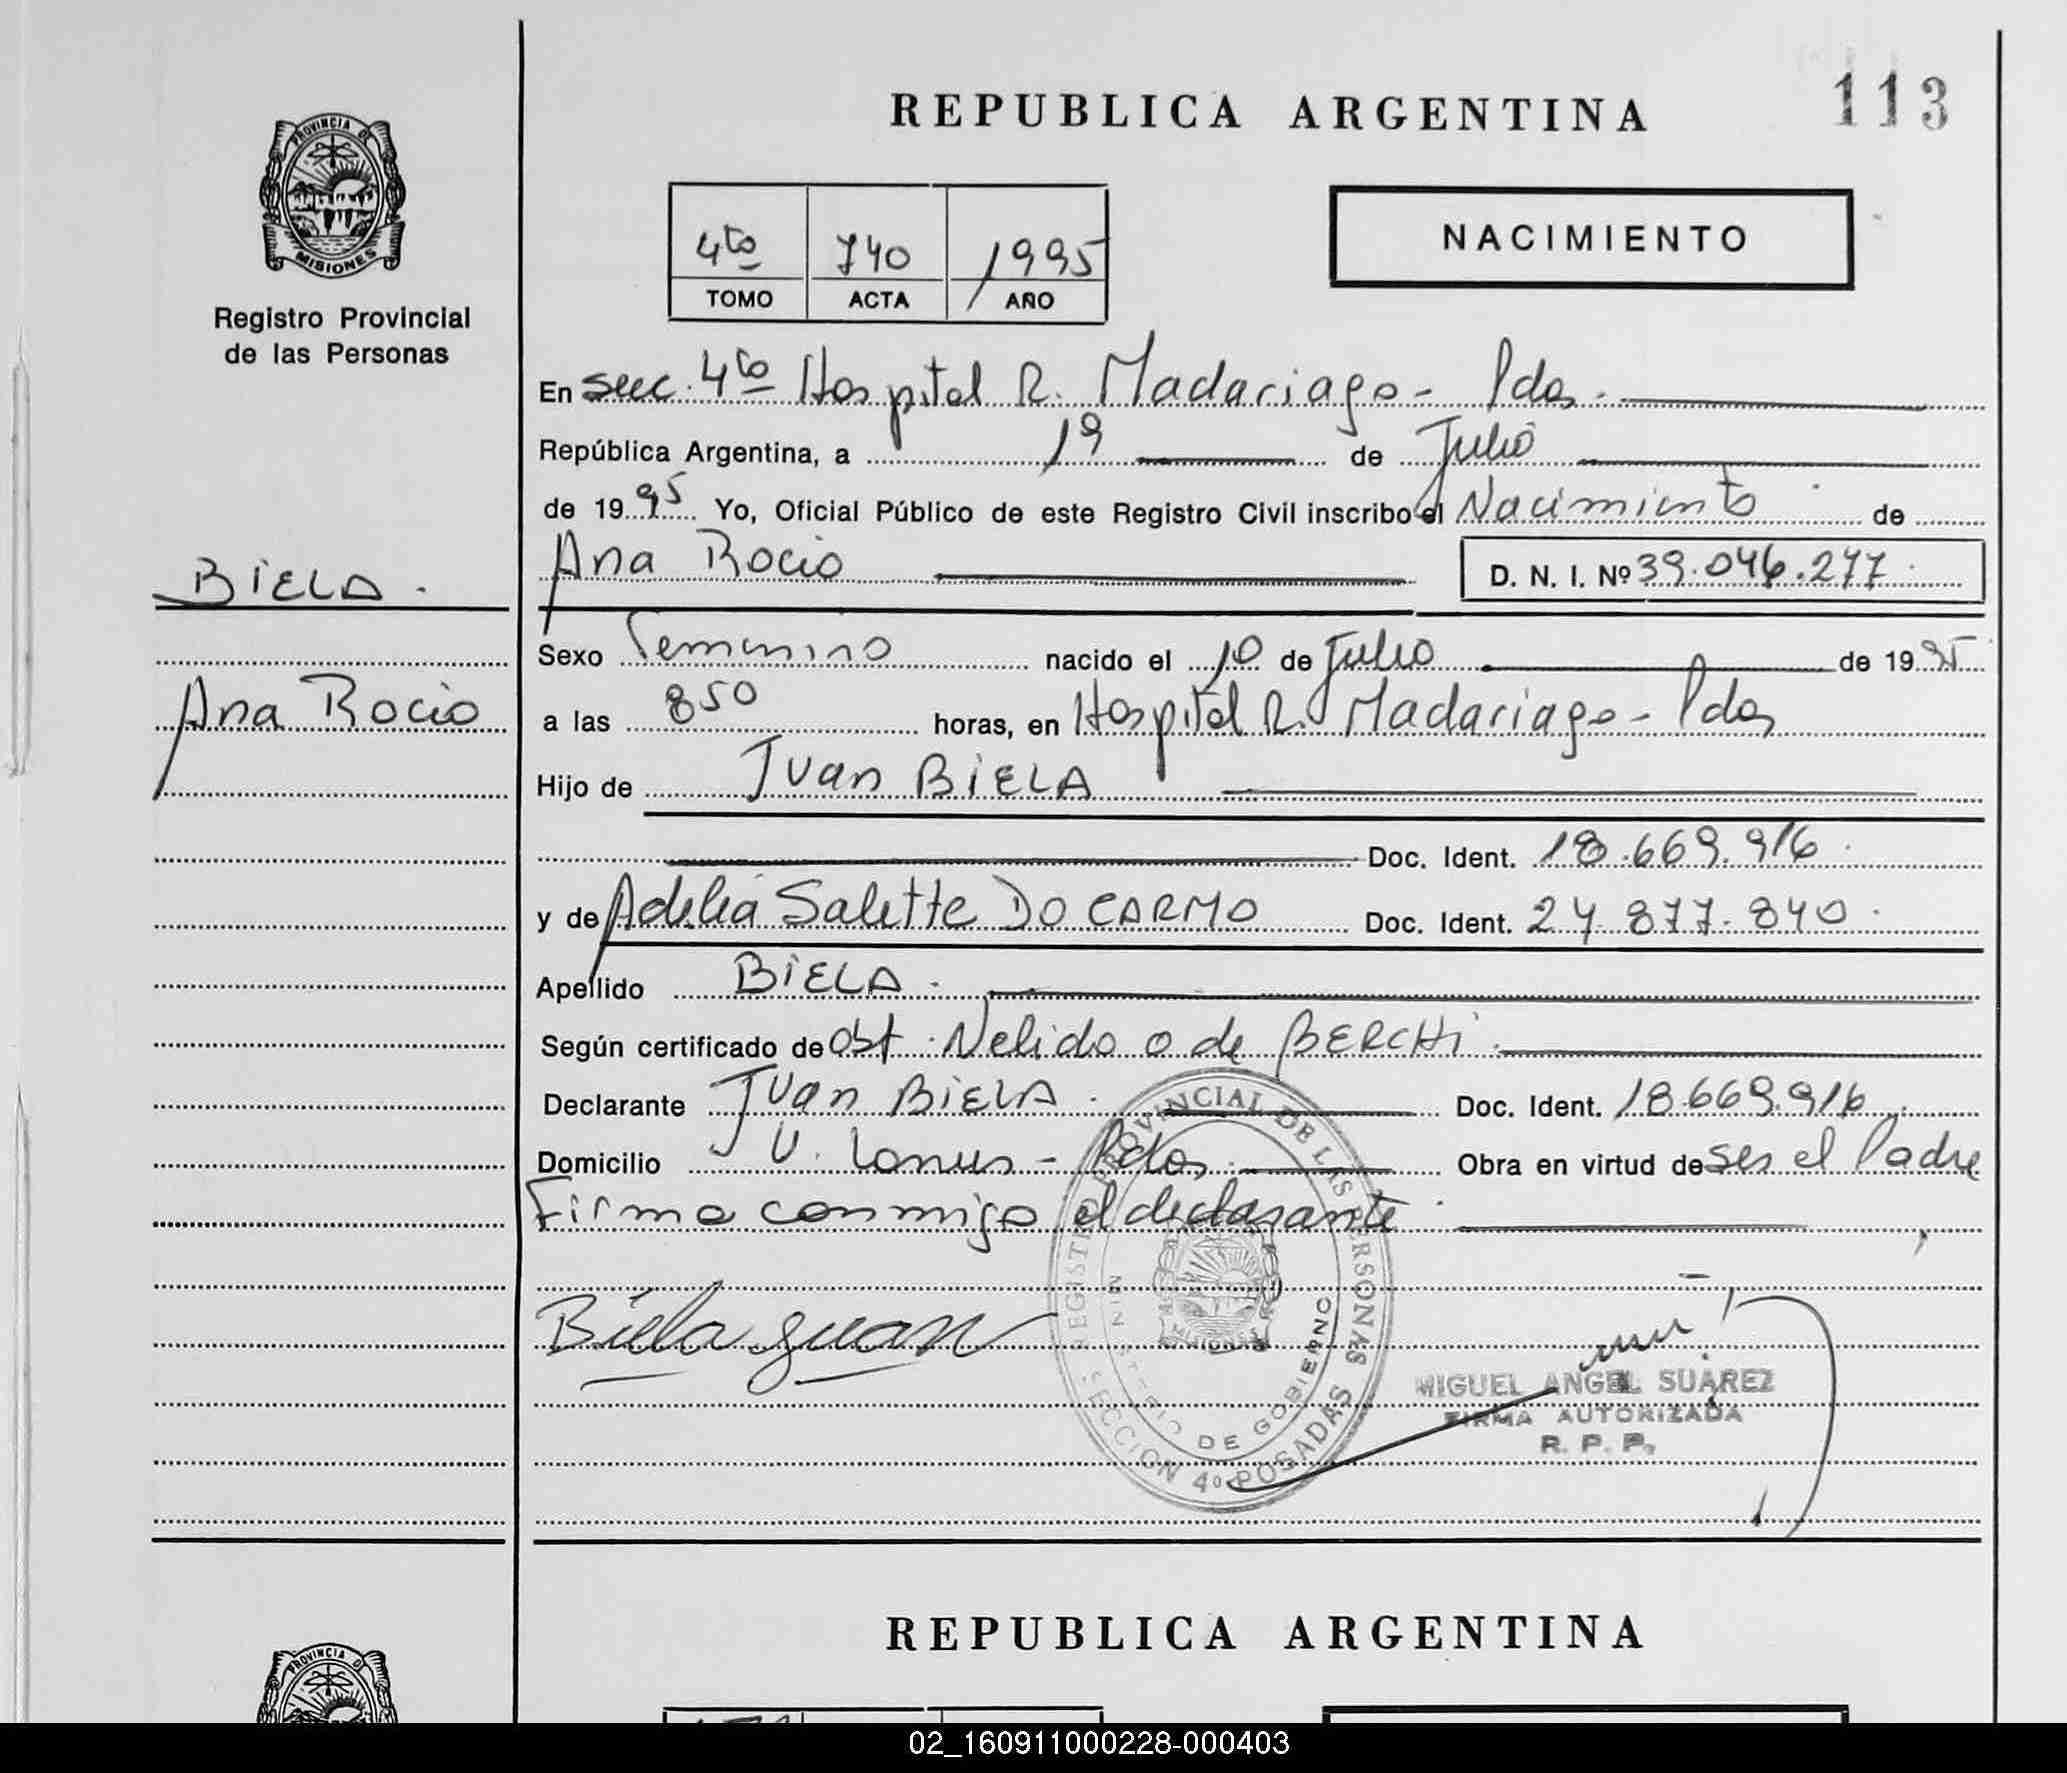 REPUBLICA ARGENTINA
113
PROVINCIA DE
MISIONES
Registro Provincial
de las Personas
4to 740 1995
TOMO ACTA AÑO
NACIMIENTO
En secc. 4to Hospital R. Madariaga - Pdas.
República Argentina, a 19 de Julio
de 1995 Yo, Oficial Público de este Registro Civil inscribo el Nacimiento de
BIELA.
Ana Rocio D. N. I. Nº 39.046.277.
Sexo Femenino nacido el 10 de Julio de 1995
Ana Rocio
a las 850 horas, en Hospital R. Madariaga - Pdas
Hijo de Juan BIELA
Doc. Ident. 18.669.916.
y de Adelia Salette DO CARMO Doc. Ident. 24.877.840.
Apellido BIELA.
Según certificado de obst. Nelida o de BERCHI.
Declarante Juan BIELA. Doc. Ident. 18.669.916
Domicilio V. Lanus - Pdas. Obra en virtud de ser el Padre
Firma conmigo el declarante.
Biela Juan
REGISTRO PROVINCIAL DE LAS PERSONAS
MINISTERIO DE GOBIERNO
MISIONES
SECCION 4º POSADAS
MIGUEL ANGEL SUAREZ
FIRMA AUTORIZADA
R. P. P.
REPUBLICA ARGENTINA
PROVINCIA D
02_160911000228-000403